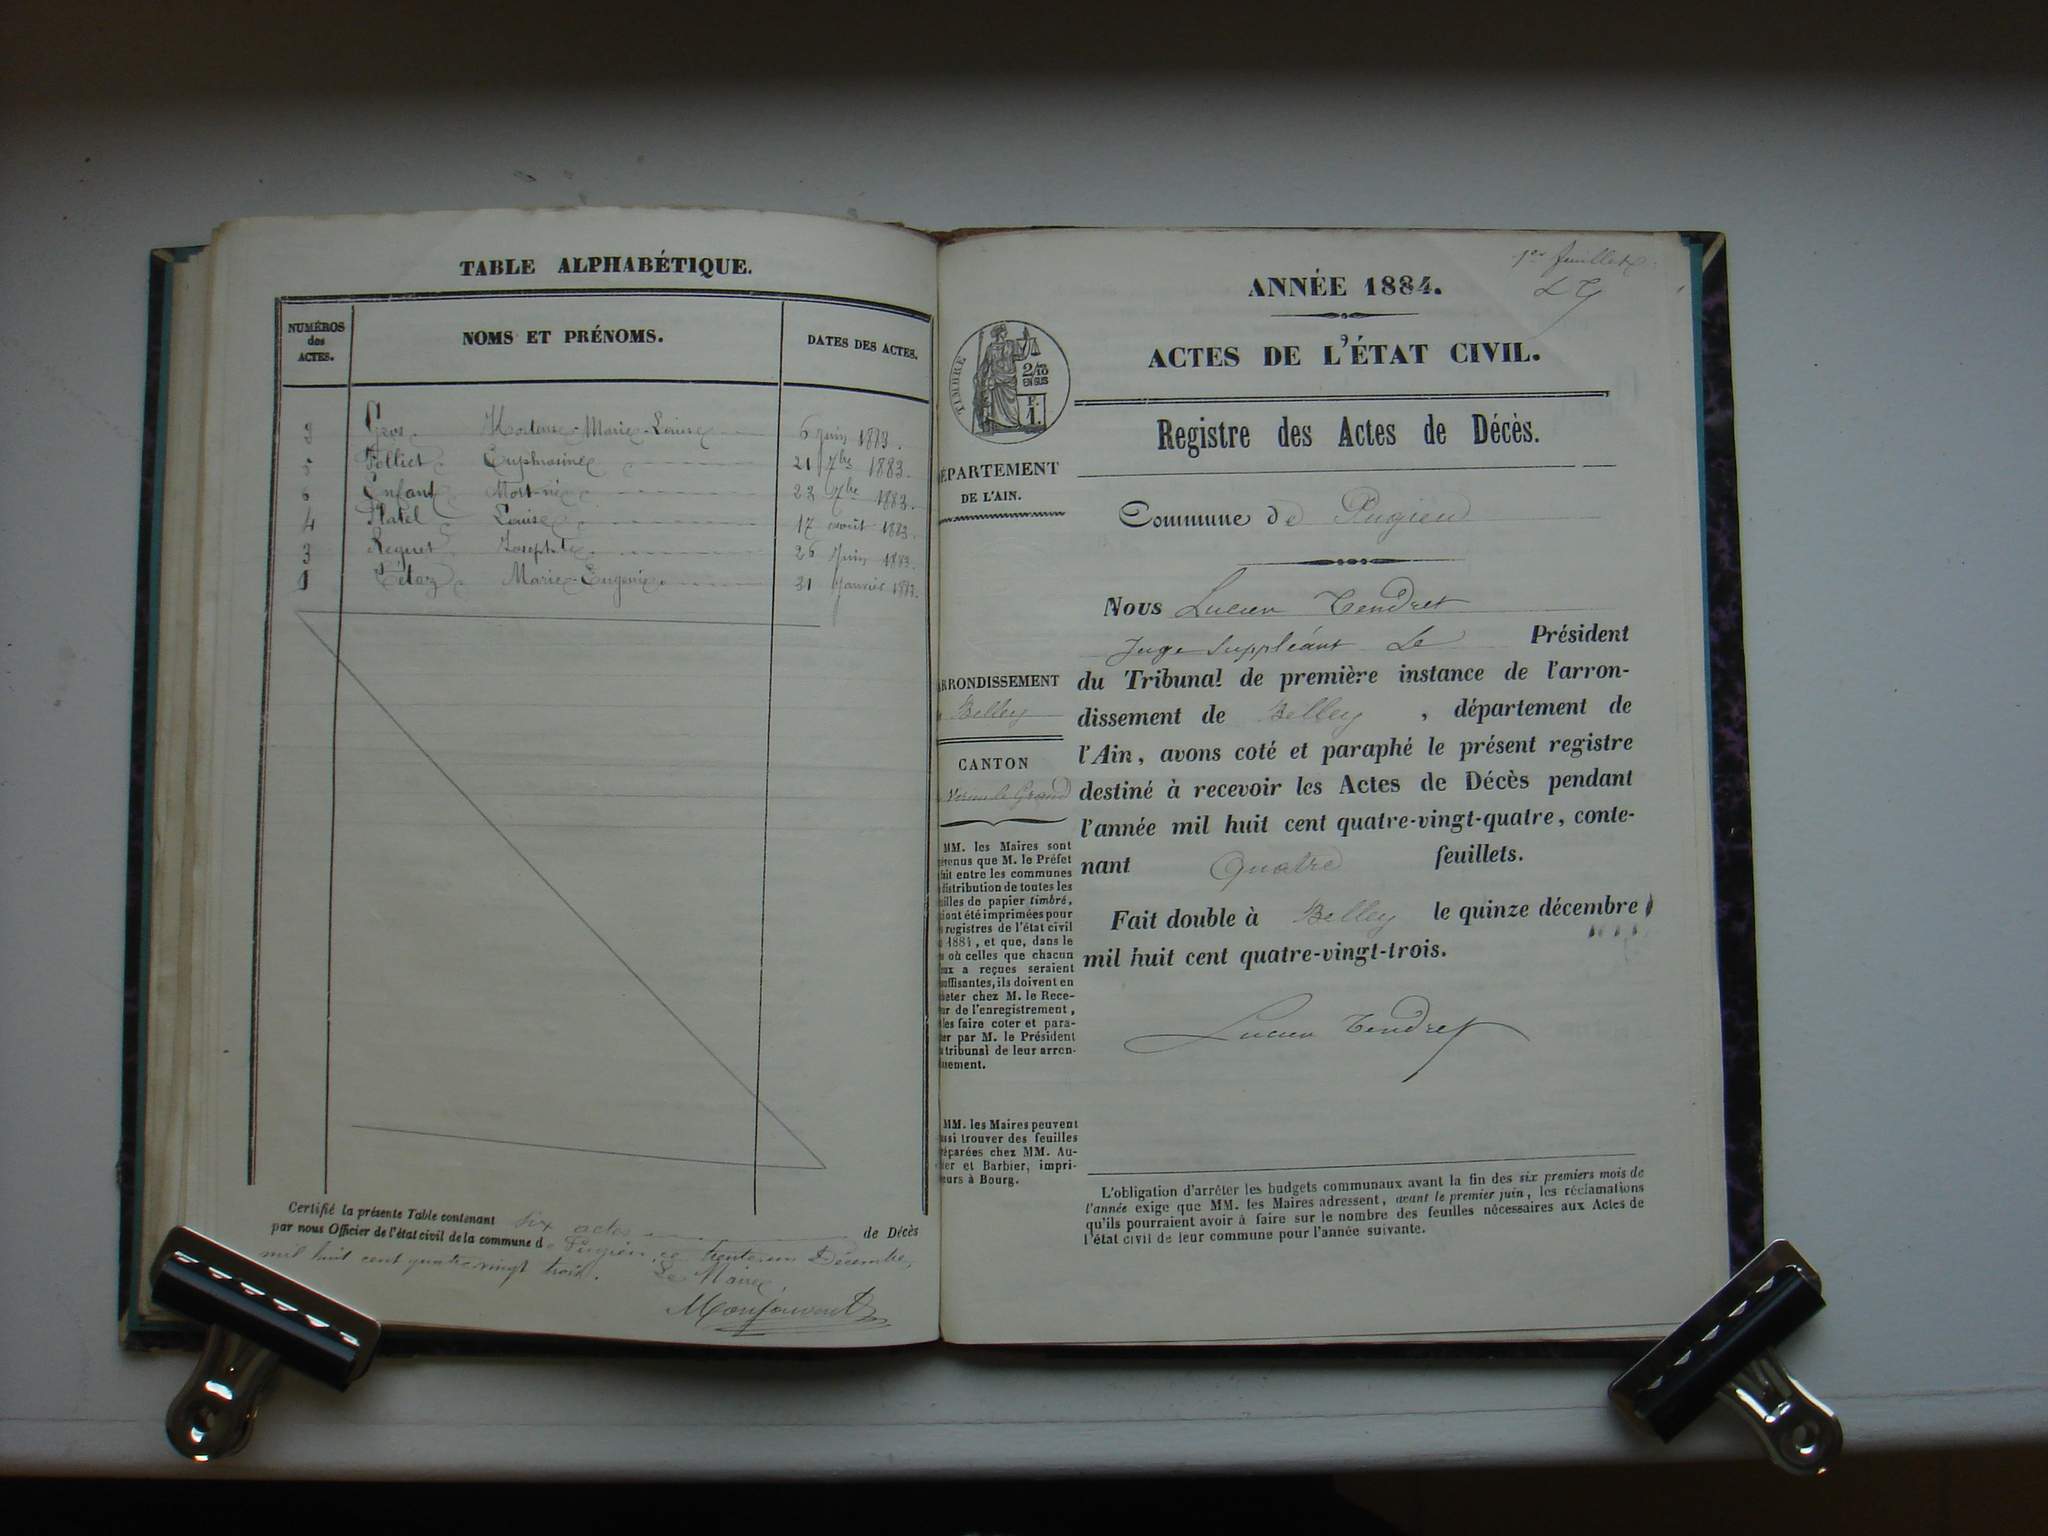 TABLE ALPHABÉTIQUE.
NUMÉROS
des
ACTES.
NOMS ET PRÉNOMS.
DATES DES ACTES.
2 Gros Hortense-Marie-Louise 6 juin 1883.
5 Folliet Euphrosine 21 7bre 1883.
6 Enfant Mort-né 23 7bre 1883.
4 Platel Louise 17 août 1883.
3 Reguet Josephte 26 Juin 1883.
1 Tétaz Marie-Eugénie 31 Janvier 1883.
Certifié la présente Table contenant six actes de Décès
par nous Officier de l'état civil de la commune de Pugieu, ce trente-un Décembre,
mil huit cent quatre-vingt trois. Le Maire,
1er feuillet
LT
ANNÉE 1884.
ACTES DE L'ÉTAT CIVIL.
TIMBRE
2/10
EN SUS
F.
1.
Registre des Actes de Décès.
DÉPARTEMENT
DE L'AIN.
Commune de Pugieu
Nous Lucien Tendret
Juge Suppléant Le Président
du Tribunal de première instance de l'arron-
dissement de Belley, département de
l'Ain, avons coté et paraphé le présent registre
destiné à recevoir les Actes de Décès pendant
l'année mil huit cent quatre-vingt-quatre, conte-
nant Quatre feuillets.
Fait double à Belley le quinze décembre
mil huit cent quatre-vingt-trois.
Lucien Tendret
ARRONDISSEMENT
Belley
CANTON
Virieu le Grand
MM. les Maires sont
venus que M. le Préfet
fait entre les communes
distribution de toutes les
uilles de papier timbré,
i ont été imprimées pour
registres de l'état civil
1884, et que, dans le
où celles que chacun
eux a reçues seraient
suffisantes, ils doivent en
heter chez M. le Rece-
ur de l'enregistrement,
les faire coter et para-
er par M. le Président
tribunal de leur arron-
ssement.
MM. les Maires peuvent
ussi trouver des feuilles
réparées chez MM. Au-
ier et Barbier, impri-
eurs à Bourg.
L'obligation d'arrêter les budgets communaux avant la fin des six premiers mois de
l'année exige que MM. les Maires adressent, avant le premier juin, les réclamations
qu'ils pourraient avoir à faire sur le nombre des feuilles nécessaires aux Actes de
l'état civil de leur commune pour l'année suivante.